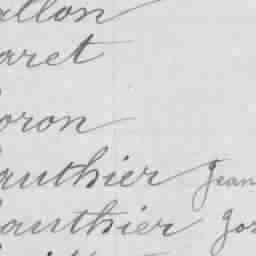 allon
aret
oron
authier Jean
authier Jos